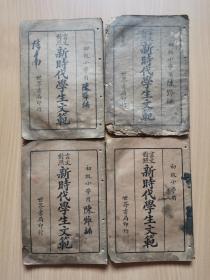 初級小學用
言文對照
新時代學生文範
世界書局印行
初級小學用
言文對照
新時代學生文範
世界書局印行
初級小學用
言文對照
新時代學生文範
世界書局印行
初級小學用
言文對照
新時代學生文範
世界書局印行